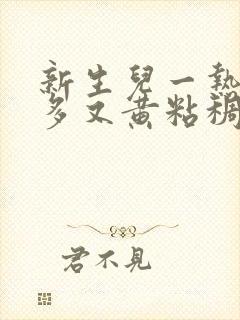 新生兒一熱
多又黃粘稠
君不見